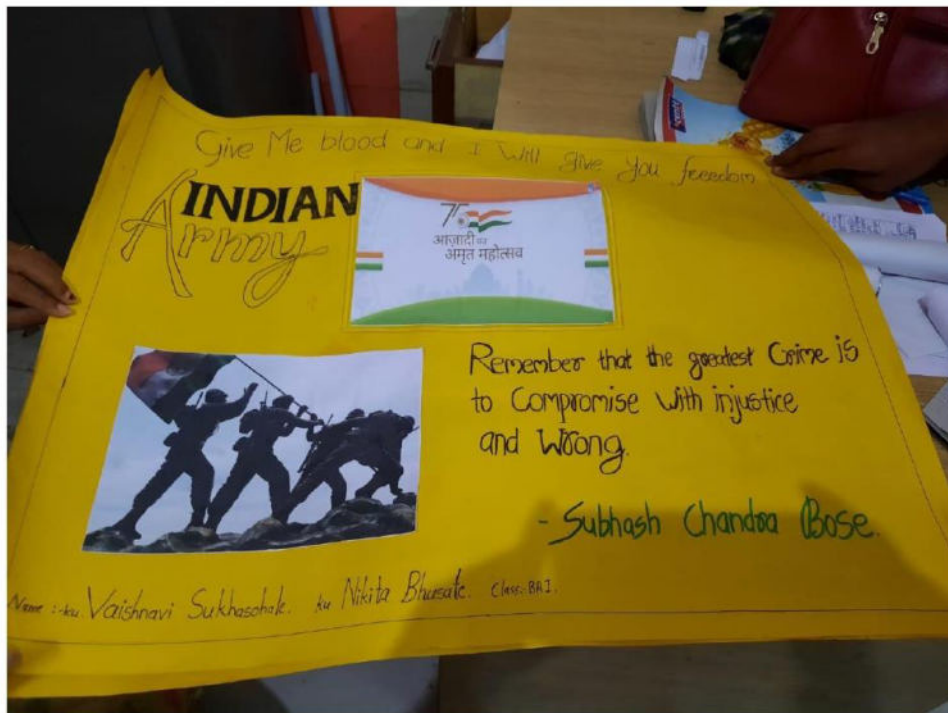 Give Me blood and I Will give You freedom
INDIAN
Army
75
आज़ादी का
अमृत महोत्सव
Remember that the greatest Crime is
to Compromise with injustice
and Wrong.
- Subhash Chandra Bose.
Name :- ku. Vaishnavi Sukhasohale. ku Nikita Bhusate. Class:- BAI.